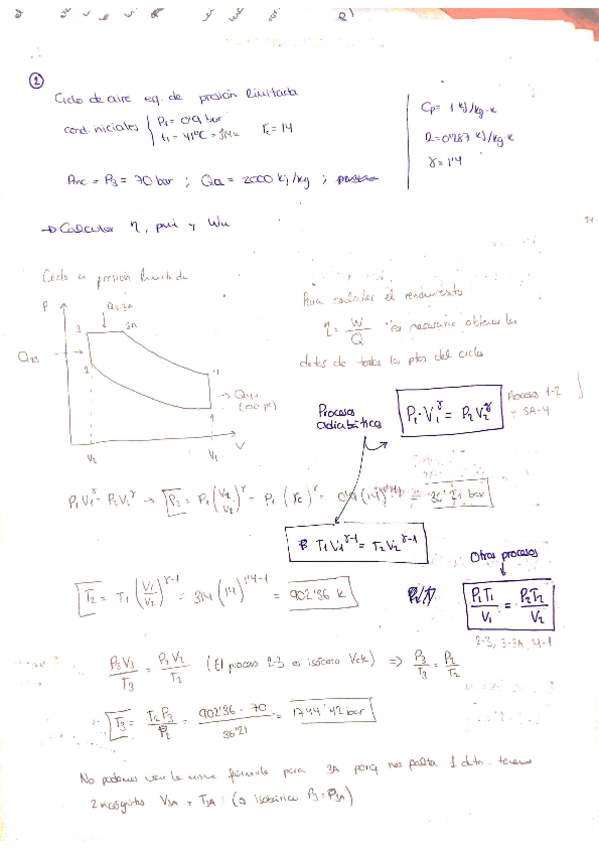 2)
①
Ciclo de aire eq. de presión limitada
cond. iniciales { P1 = 0'9 bar
t1 = 41°C = 314 K rc = 14
Cp = 1 kJ/kg·K
R = 0'287 kJ/kg·K
γ = 1'4
P3 = 70 bar ; Qa = 2000 kJ/kg ;
→ Calcular η, pmi y Wu
Ciclo a presión limitada
P
Q3-3A
3
3A
2
4
1
Q4-1
(escape)
V2
V1
V
Para calcular el rendimiento
η = W/Q es necesario obtener los
datos de todos los ptos del ciclo
Procesos
adiabáticos
P1·V1^γ = P2V2^γ
Proceso 1-2
3A-4
P1V1^γ = P2V2^γ → P2 = P1(V1/V2)^γ = P1 (rc)^γ = 0'9(14)^1'4 = 36'21 bar
T1V1^γ-1 = T2V2^γ-1
T2 = T1 (V1/V2)^γ-1 = 314 (14)^1'4-1 = 902'36 K
Otros procesos
P1T1/V1 = P2T2/V2
2-3, 3-3A, 4-1
P3V3/T3 = P2V2/T2 (El proceso 2-3 es isócoro V cte) => P3/T3 = P2/T2
T3 = T2P3/P2 = 902'36 · 70/36'21 = 1744'42 bar
No podemos usar la misma fórmula para 3A porq nos falta 1 dato. tenemos
2 incógnitas V3A y T3A: (es isobárico P3 = P3A)